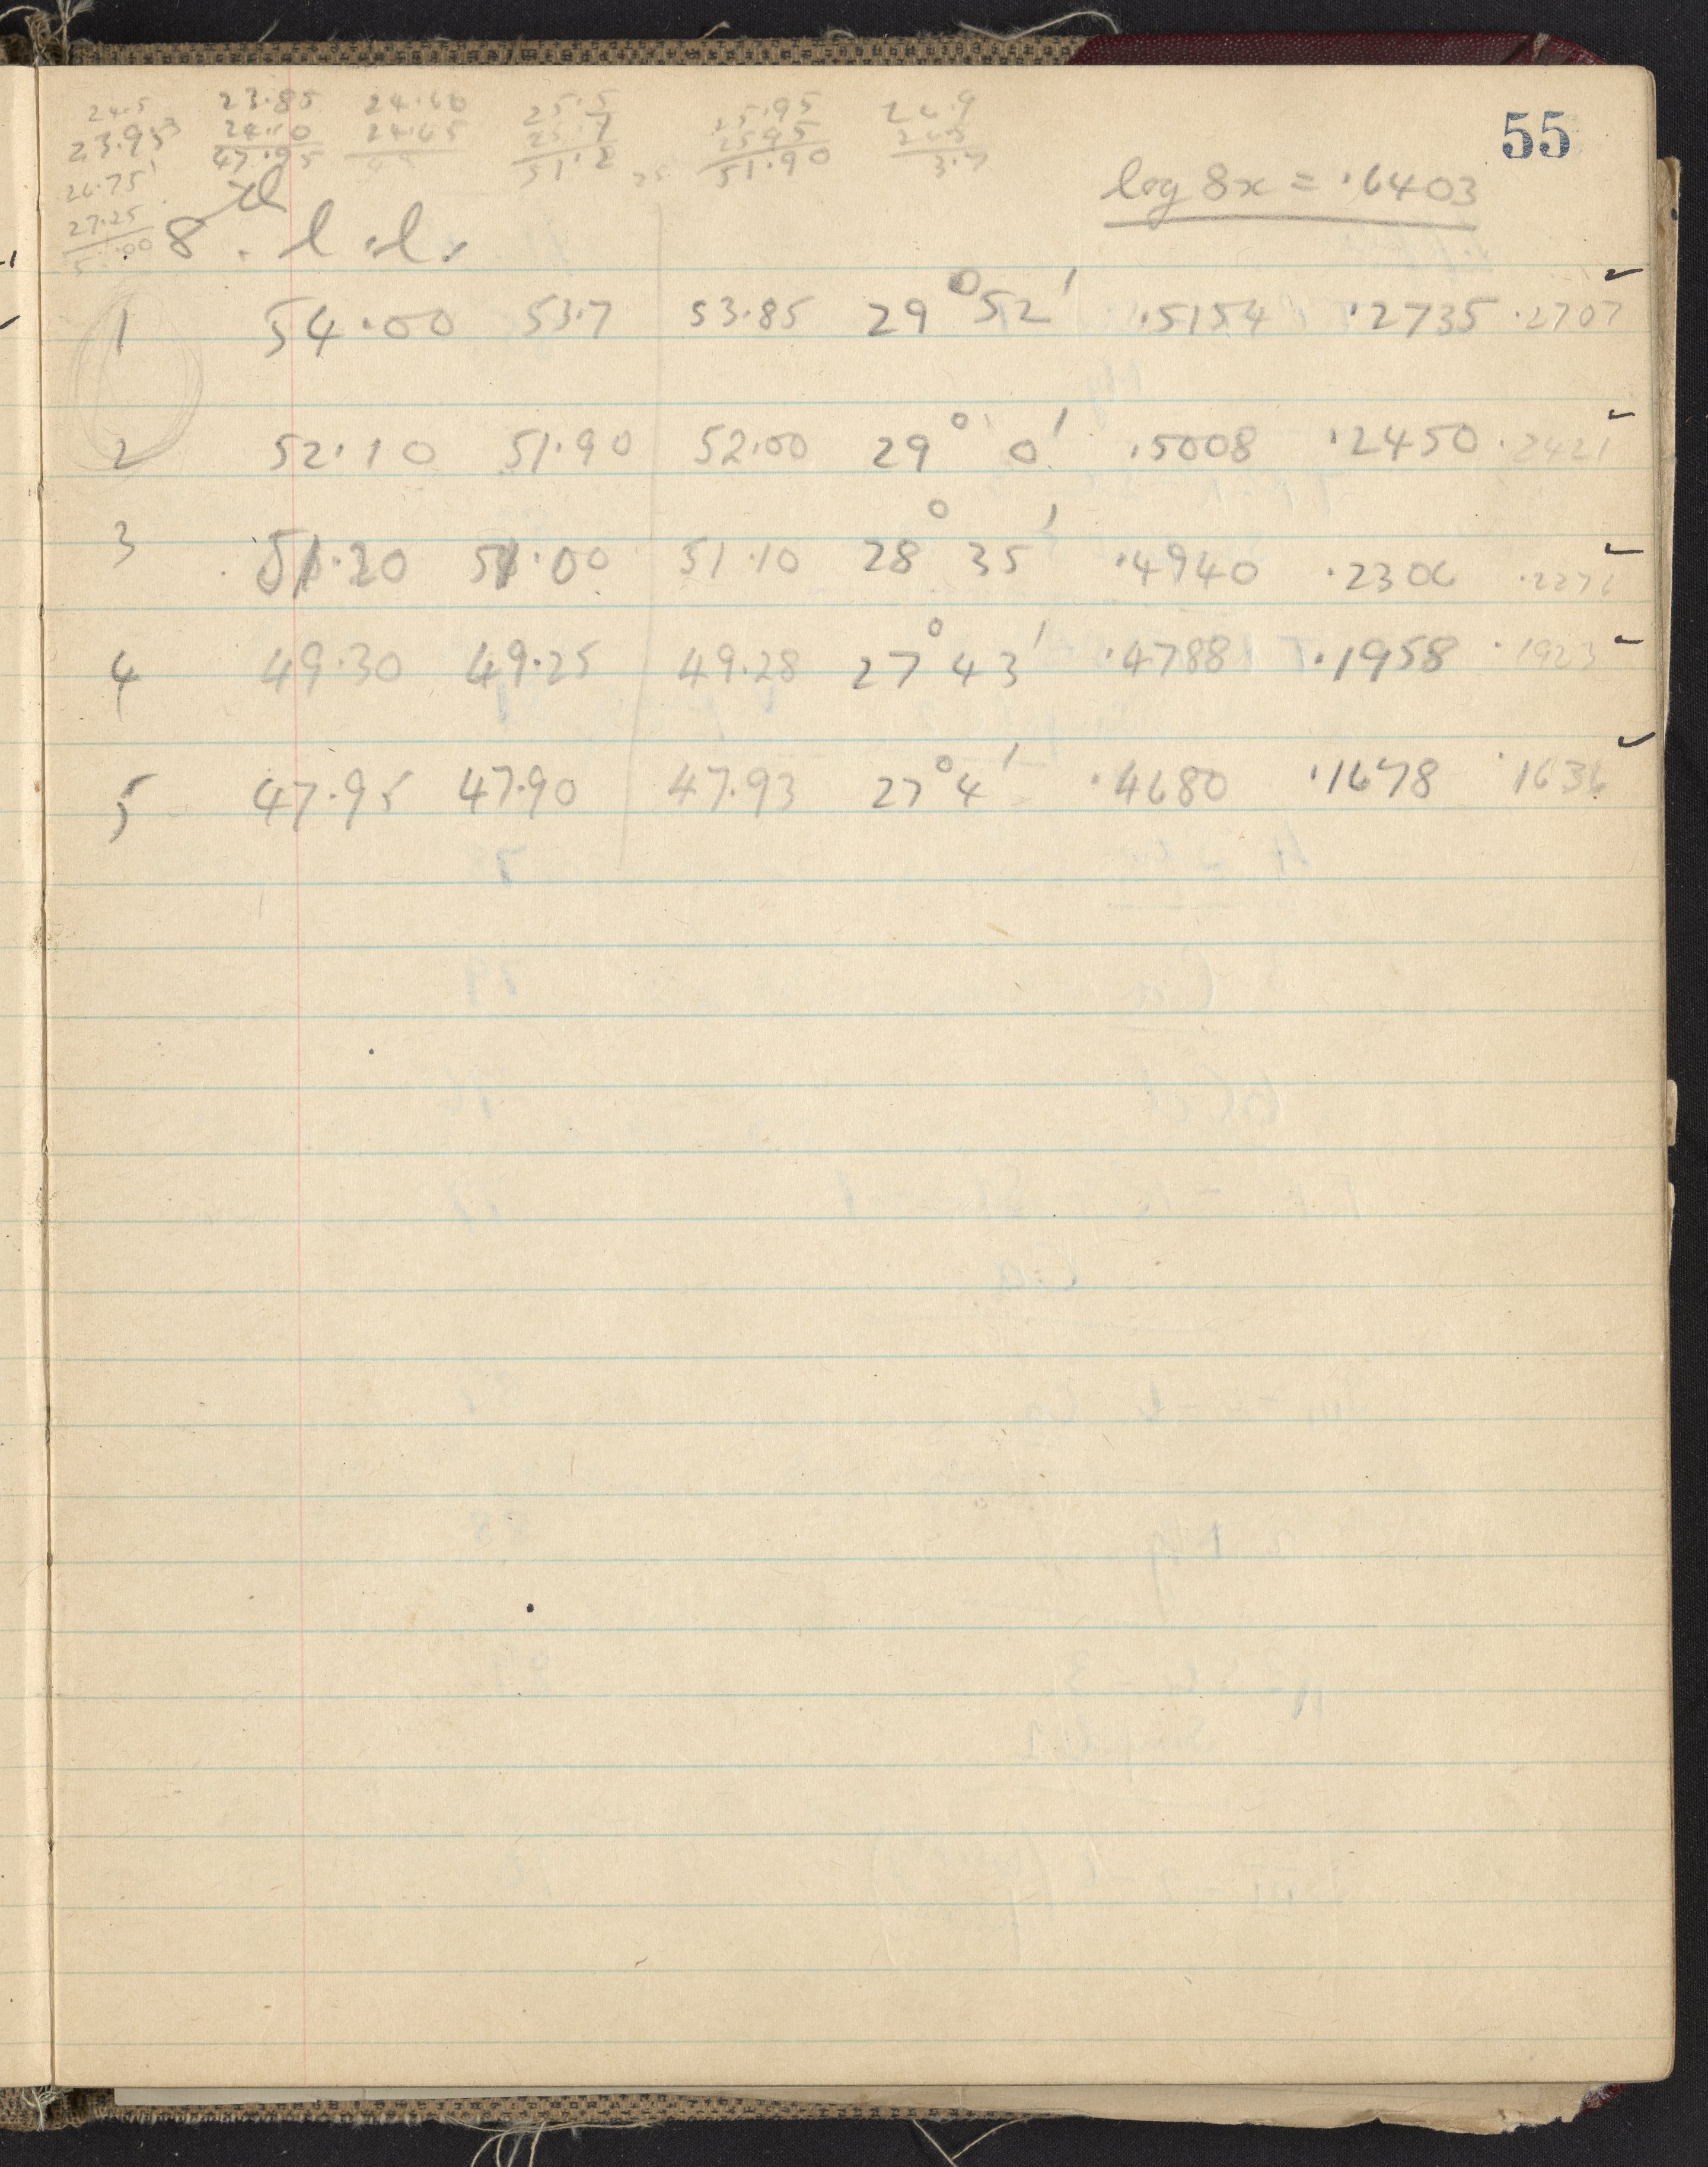 55
24.5 23.85 24.60 25.5 25.95 26.9
23.95 24.10 24.65 25.7 25.95
47.95 51.2 51.90 3.7
26.75
27.25
log 8x = .6403
8 . l . l .
1 54.00 53.7 53.85 29° 52' .5154 .2735 .2707 ✓
2 52.10 51.90 52.00 29° 0' .5008 .2450 .2421 ✓
3 51.20 51.00 51.10 28° 35' .4940 .2306 .2276 ✓
4 49.30 49.25 49.28 27° 43' .4788 .1958 .1923 ✓
5 47.95 47.90 47.93 27° 4' .4680 .1678 .1636 ✓